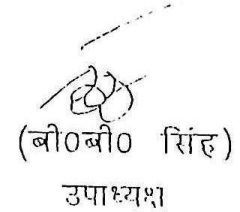 (बी0बी0 सिंह)
उपाध्यक्ष